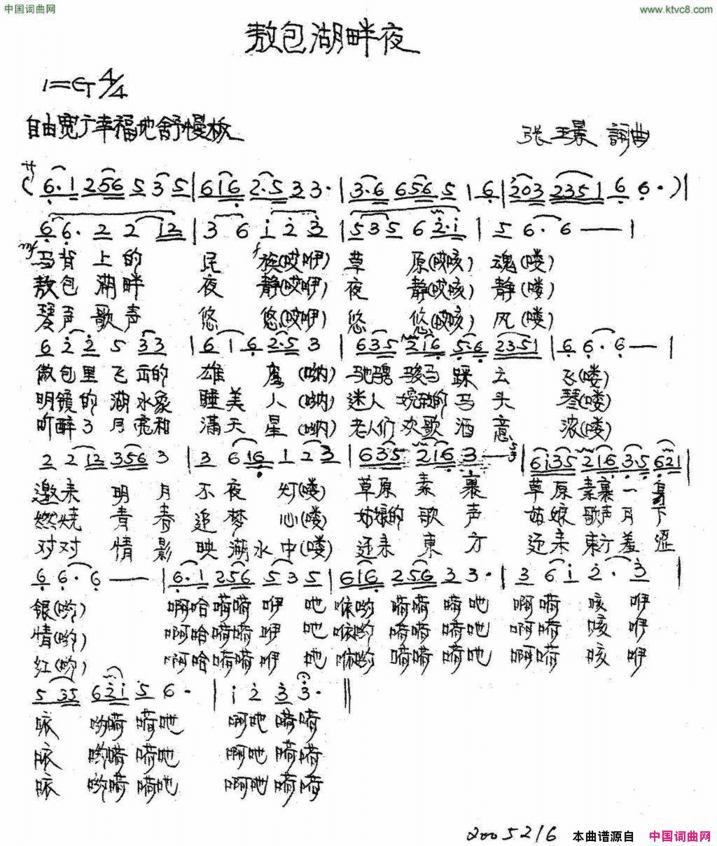 中国词曲网
www.ktvc8.com
敖包湖畔夜
1=G 4/4
自由宽广幸福地 舒慢板
张玉景 詞曲
(6·1 256 5 3 5 | 616 2·5 3 3· | 3·6 656 5 1 6 | 203 2351 6 6· )|
6 6· 2 2 12 | 3 6 i 2 3 | 535 6 2·i | 5 6· 6 — |
mf f
马背上的 民 族(哎咿) 草 原(哎咳) 魂(喽)
敖包湖畔 夜 静(哎咿) 夜 静(哎咳) 静(喽)
琴声歌声 悠 悠(哎咿) 悠 悠(哎咳) 风(喽)
6 2 2 5 33 | 6 1 6 2·5 3 | 635 216 56 2351 | 6 6· 6 — |
敖包里飞出的 雄 鹰(哟) 骑骏马 踩 云 飞(喽)
明镜的湖水象 睡美人(哟) 迷人 的马头 琴(喽)
听醉了月亮和 满天星(哟) 老人们欢歌酒意 浓(喽)
2 2 12 356 3 | 3 6 16 1 23 | 635 216 3 — | 6i35 216 35 621 |
邀来 明月 不夜灯(喽) 草原素裹 草原素裹一身
燃烧青春追梦心(喽) 姑娘的歌声 姑娘歌声月下
对对情影映湖水中(喽) 还来東方 还来東方羞涩
6 6· 6 — | 6·1 256 5 3 5 | 616 256 3 3· | 3 6 i 2· 3 |
银(哟) 啊哈嗬嗬咿 吔 咴哟嗬嗬嗬吔 啊嗬 咳 咿
情(哟) 啊哈嗬嗬咿 吔 咴哟嗬嗬嗬吔 啊嗬 咳 咿
红(哟) 啊哈嗬嗬咿 吔 咴哟嗬嗬嗬吔 啊嗬 咳 咿
5 35 62i 5 6· | i 2 3 3· ‖
咴 哟嗬嗬吔 啊吔嗬嗬
咴 哟嗬嗬吔 啊吔嗬嗬
咴 哟嗬嗬吔 啊吔嗬嗬
2005216 本曲谱源自 中国词曲网